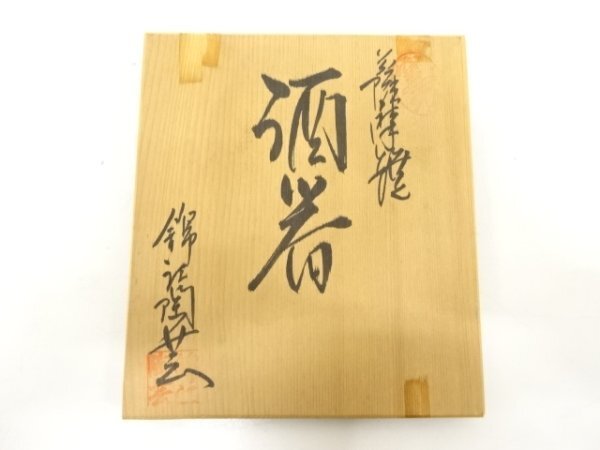 薩摩焼
酒器
錦祥陶芸